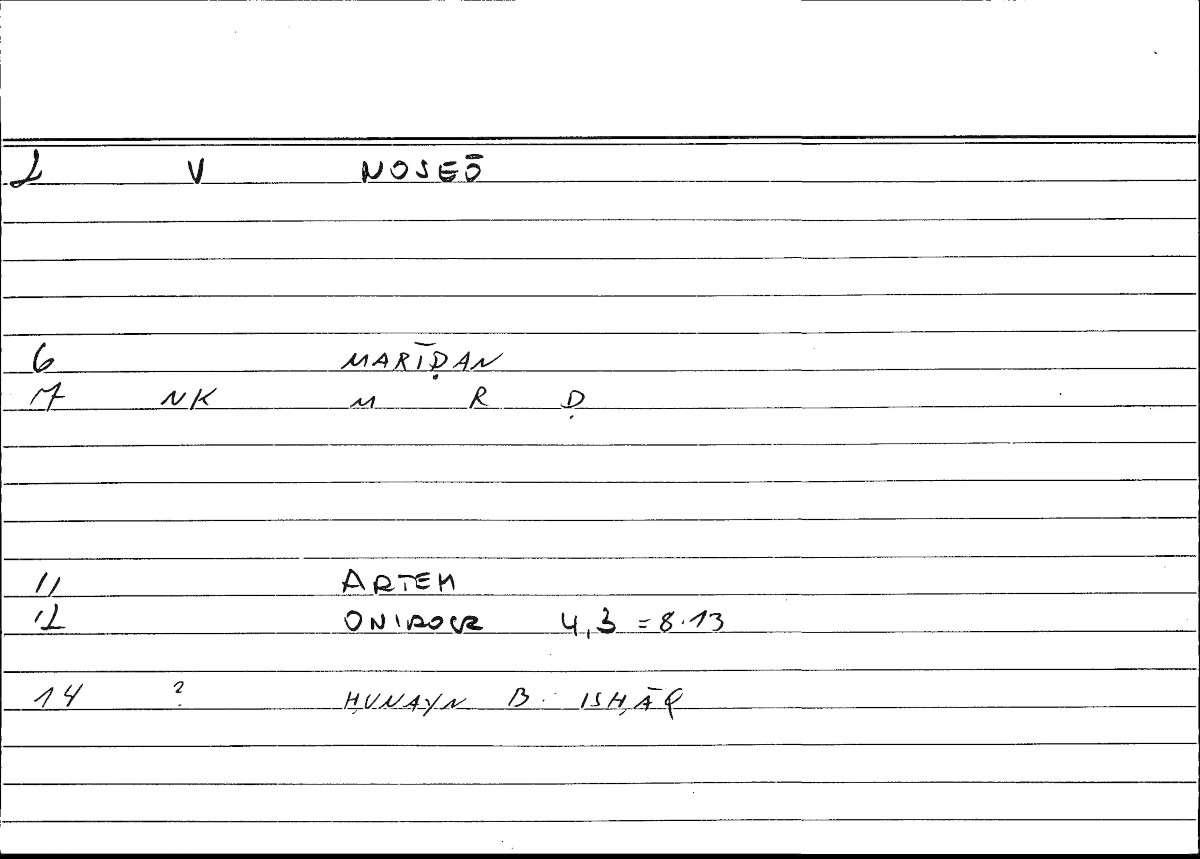 2 V NOSEŌ
6 MARĪḌAN
7 NK M R Ḍ
11 ARTEM
12 ONIROCR 4,3 = 8.13
14 ? ḤUNAYN B. ISḤĀQ